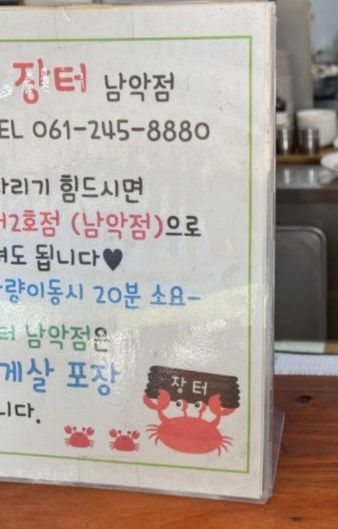 장터 남악점
TEL 061-245-8880
다리기 힘드시면
2호점 (남악점)으로
도 됩니다♥
량이동시 20분 소요-
터 남악점은
게살 포장
니다.
장터